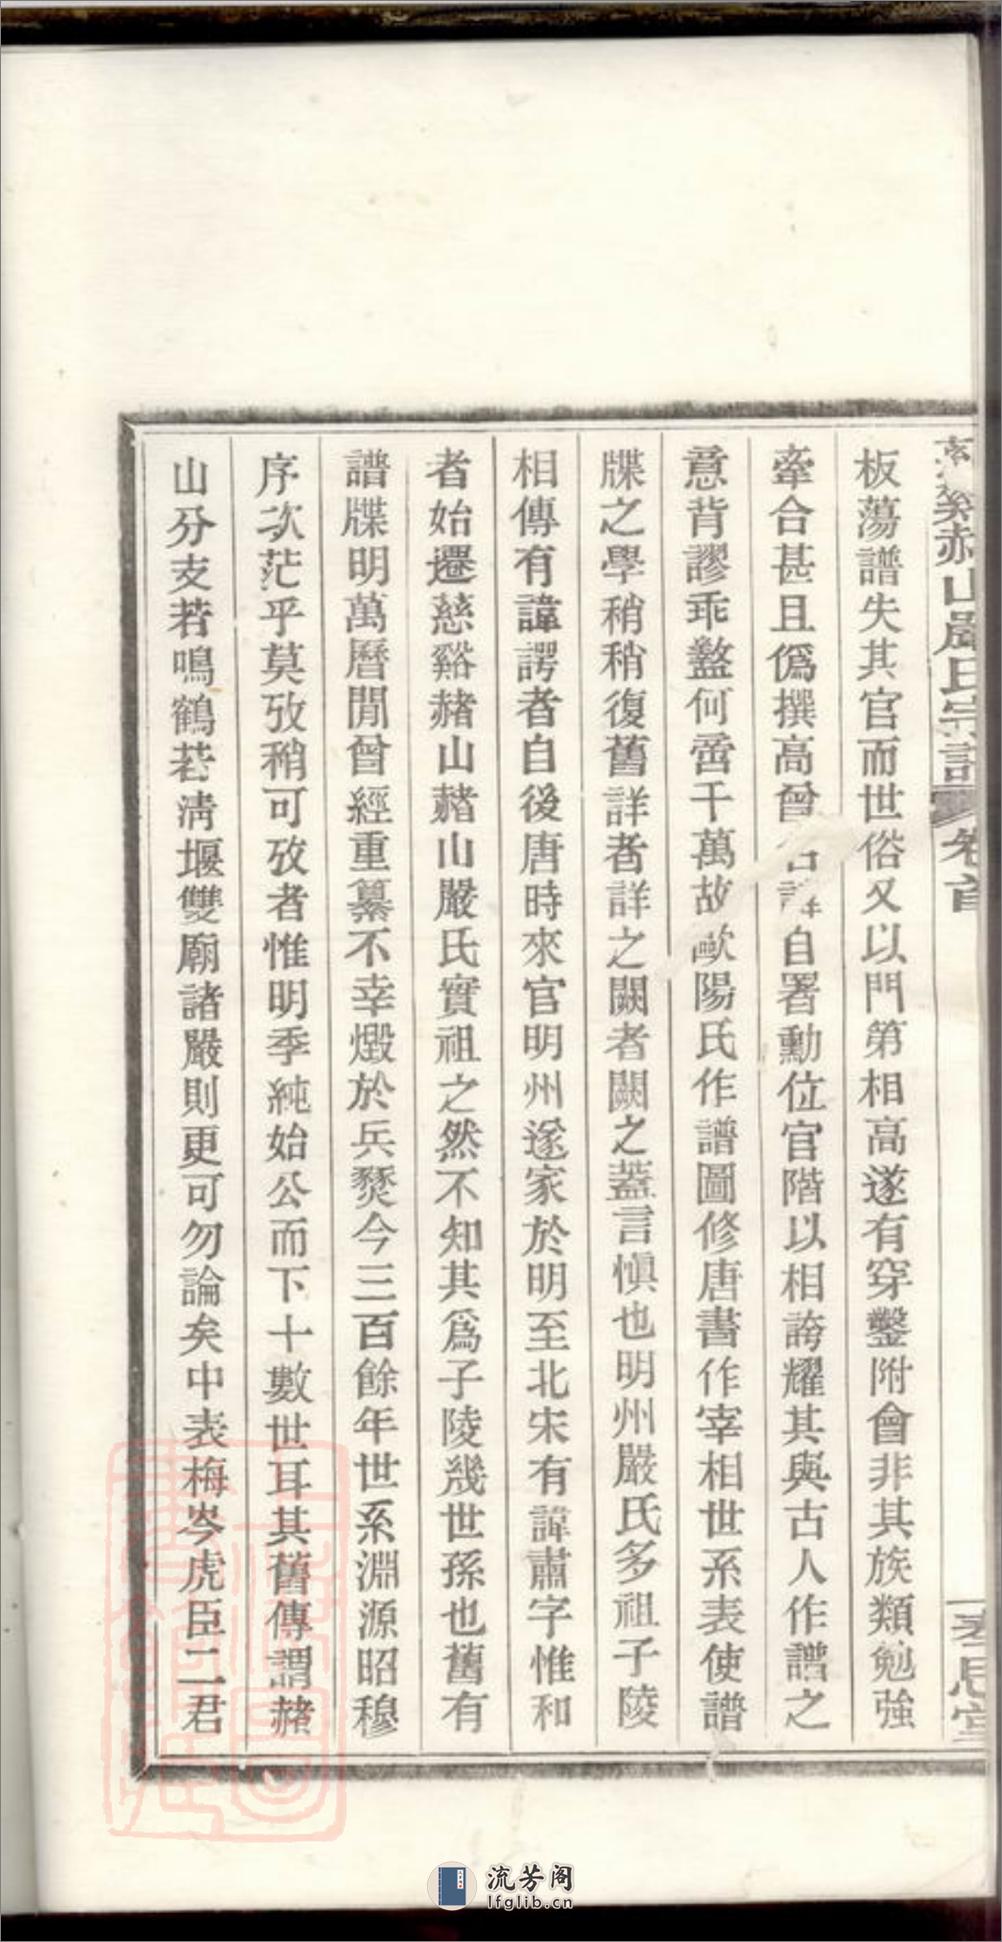 山嚴氏宗譜 卷首
板蕩譜失其官而世俗又以門第相高遂有穿鑿附會非其族類勉強
牽合甚且僞撰高曾名諱自署勳位官階以相誇耀其與古人作譜之
意背謬乖盭何啻千萬故歐陽氏作譜圖修唐書作宰相世系表使譜
牒之學稍稍復舊詳者詳之闕者闕之蓋言愼也明州嚴氏多祖子陵
相傳有諱諤者自後唐時來官明州遂家於明至北宋有諱肅字惟和
者始遷慈谿赭山赭山嚴氏實祖之然不知其爲子陵幾世孫也舊有
譜牒明萬曆閒曾經重纂不幸燬於兵燹今三百餘年世系淵源昭穆
序次茫乎莫攷稍可攷者惟明季純始公而下十數世耳其舊傳謂赭
山分支若鳴鶴巷淸堰雙廟諸嚴則更可勿論矣中表梅岑虎臣二君
流芳阁
lfglib.cn